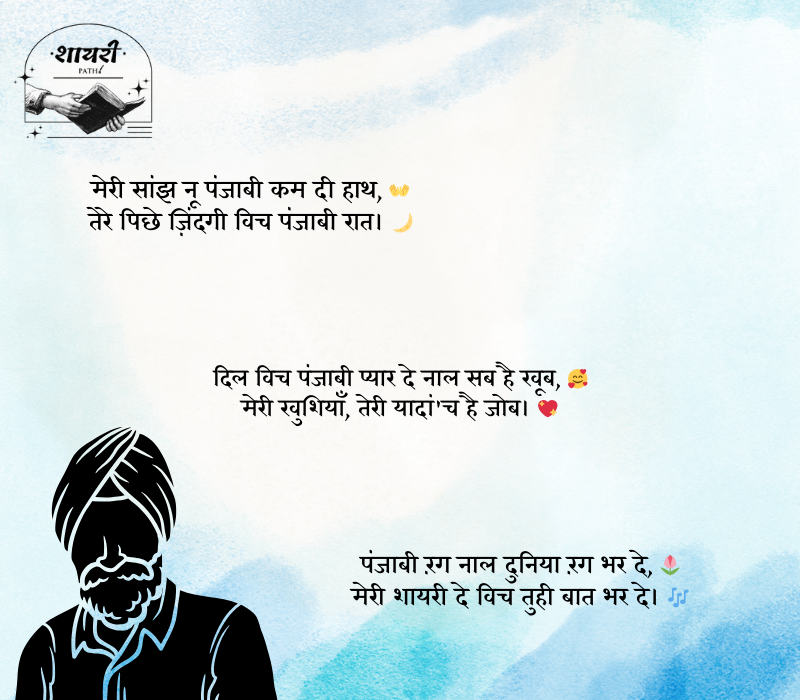 शायरी
PATH
मेरी सांझ नू पंजाबी कम दी हाथ, 👐
तेरे पिछे ज़िंदगी विच पंजाबी रात। 🌙
दिल विच पंजाबी प्यार दे नाल सब है खूब, 🥰
मेरी खुशियाँ, तेरी यादां'च है जोब। 💖
पंजाबी रंग नाल दुनिया रंग भर दे, 🌷
मेरी शायरी दे विच तुही बात भर दे। 🎶